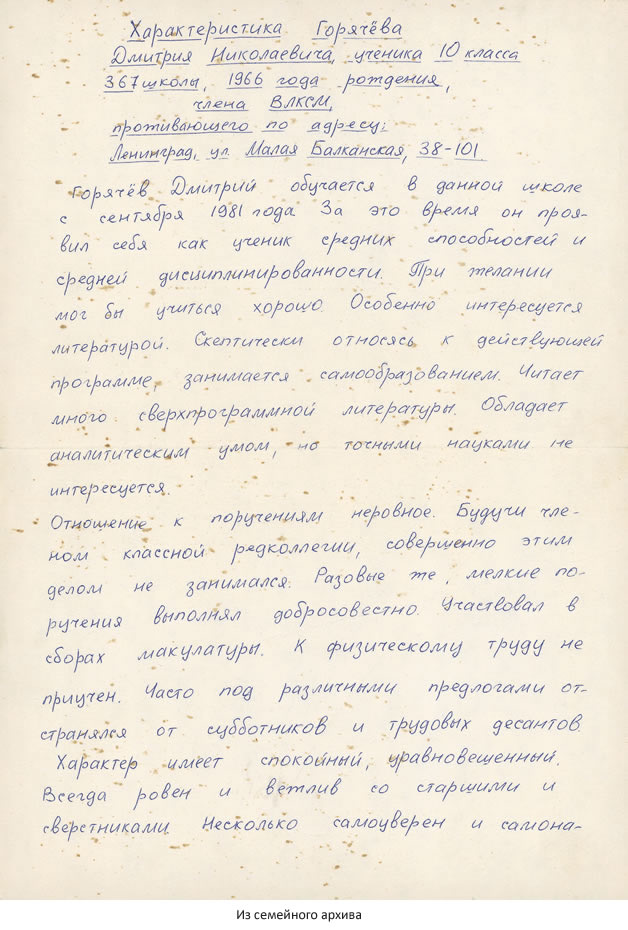 Характеристика Горячёва
Дмитрия Николаевича, ученика 10 класса
367 школы, 1966 года рождения,
члена ВЛКСМ,
проживающего по адресу:
Ленинград, ул. Малая Балканская, 38-101
Горячёв Дмитрий обучается в данной школе
с сентября 1981 года За это время он проя-
вил себя как ученик средних способностей и
средней дисциплинированности. При желании
мог бы учиться хорошо. Особенно интересуется
литературой. Скептически относясь к действующей
программе, занимается самообразованием. Читает
много сверхпрограммной литературы. Обладает
аналитическим умом, но точными науками не
интересуется.
Отношение к поручениям неровное. Будучи чле-
ном классной редколлегии, совершенно этим
делом не занимался. Разовые же, мелкие по-
ручения выполнял добросовестно. Участвовал в
сборах макулатуры. К физическому труду не
приучен. Часто под различными предлогами от-
странялся от субботников и трудовых десантов.
Характер имеет спокойный, уравновешенный.
Всегда ровен и ветлив со старшими и
сверстниками Несколько самоуверен и самона-
Из семейного архива